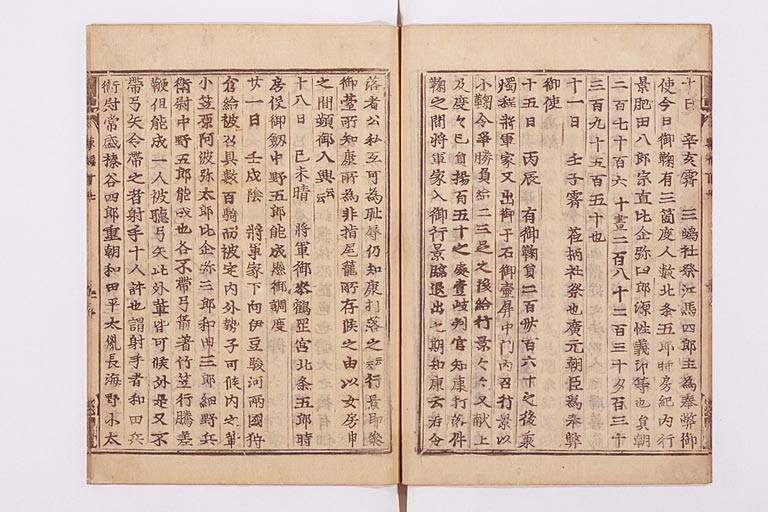 十日 辛亥霽 三嶋社祭江馬四郎主為奉弊御
使今日御鞠有三箇度人数北条五郎時房紀内行
景肥田八郎宗直比企弥四郎源性義印等也員朝
二百七十百六十晝二百八十二百三十夕百三十
三百九十五百五十也
十一日 壬子霽 荏柄社祭也廣元朝臣為奉弊
御使
十五日 丙辰 有御鞠員二百卅百六十之後兼
燭程將軍家又出御于石御壷屏中門内召行景以
小鞠令争勝負給二三足之後給行景々々又献上
及度々已員揚百五十之處壹岐判官知康打落件
鞠之間將軍家入御行景臨退出之期知康云若令
落者公私互可為耻辱仍知康打落之云々行景即参
御臺所知康所為非指尾籠所存候之由以女房申
之間頗御入興云々
十八日 己未晴 將軍御参鶴罡宮北条五郎時
房役御劔中野五郎能成懸御調度
廿一日 壬戌陰 將軍家下向伊豆駿河兩國狩
倉給被召具數百騎而被定内外勢子可候内之輩
小笠原阿波弥太郎比企弥三郎和田三郎細野兵
衛尉中野五郎能成也各不帯弓箭著竹笠行騰差
鞭但能成一人被聴弓矢此外輩皆可候外是又不
帯弓矢令帯之者射手十人許也謂射手者和田兵
衛尉常盛榛谷四郎重朝和田平太胤長海野小太